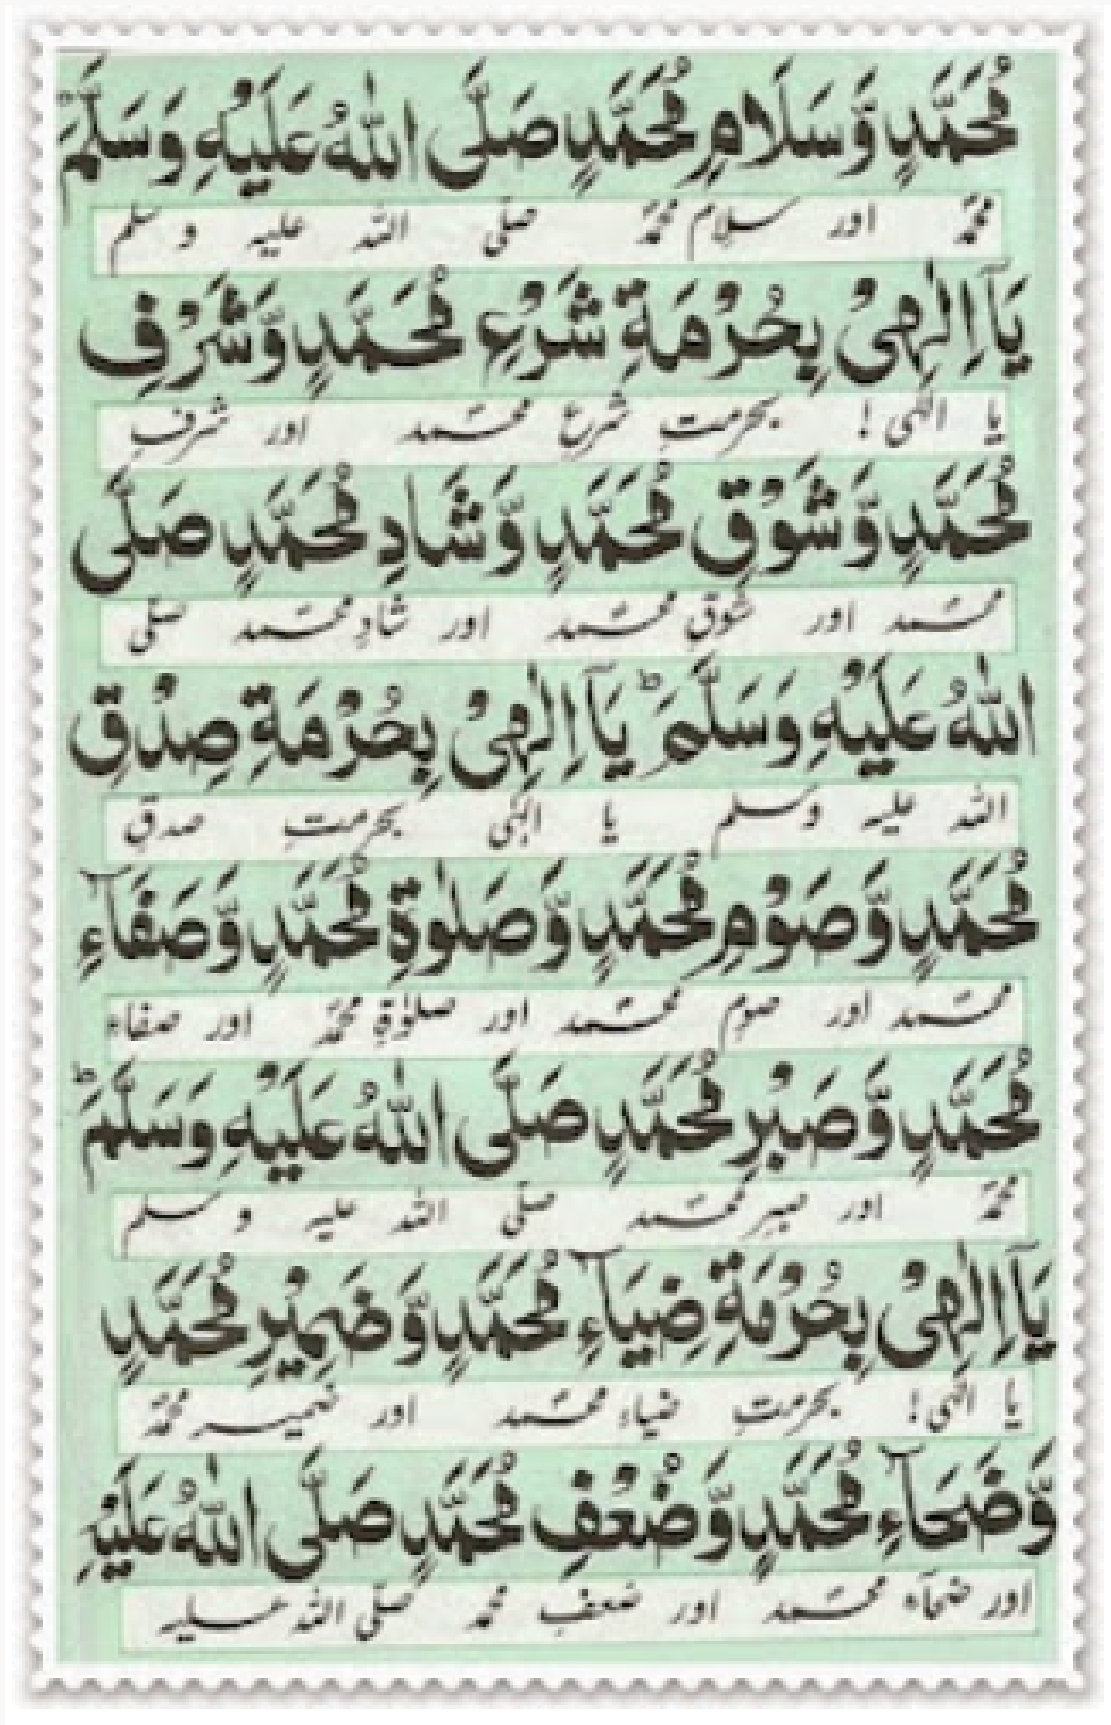 مُحَمَّدٍ وَّسَلَامِ مُحَمَّدٍ صَلَّى اللّٰهُ عَلَيْهِ وَسَلَّمَ ؕ
محمّد اور سلام محمّد صلّی اللہ علیہ وسلم
يَآ اِلٰهِيْ بِحُرْمَةِ شَرْعِ مُحَمَّدٍ وَّشَرْفِ
یا الٰہی ! بحرمتِ شرعِ محمّد اور شرفِ
مُحَمَّدٍ وَّشَوْقِ مُحَمَّدٍ وَّشَادِ مُحَمَّدٍ صَلَّى
محمّد اور شوقِ محمّد اور شادِ محمّد صلّی
اللّٰهُ عَلَيْهِ وَسَلَّمَ ؕ يَآ اِلٰهِيْ بِحُرْمَةِ صِدْقِ
اللہ علیہ وسلم یا الٰہی بحرمتِ صدقِ
مُحَمَّدٍ وَّصَوْمِ مُحَمَّدٍ وَّصَلٰوةِ مُحَمَّدٍ وَّصَفَآءِ
محمّد اور صومِ محمّد اور صلوٰۃِ محمّد اور صفاء
مُحَمَّدٍ وَّصَبْرِ مُحَمَّدٍ صَلَّى اللّٰهُ عَلَيْهِ وَسَلَّمَ ؕ
محمّد اور صبرِ محمّد صلّی اللہ علیہ وسلم
يَآ اِلٰهِيْ بِحُرْمَةِ ضِيَآءِ مُحَمَّدٍ وَّضَمِيْرِ مُحَمَّدٍ
یا الٰہی ! بحرمتِ ضیاءِ محمّد اور ضمیر محمّد
وَّضَحَآءِ مُحَمَّدٍ وَّضُعْفِ مُحَمَّدٍ صَلَّى اللّٰهُ عَلَيْهِ
اور ضحآء محمّد اور ضعفِ محمد صلّی اللہ علیہ